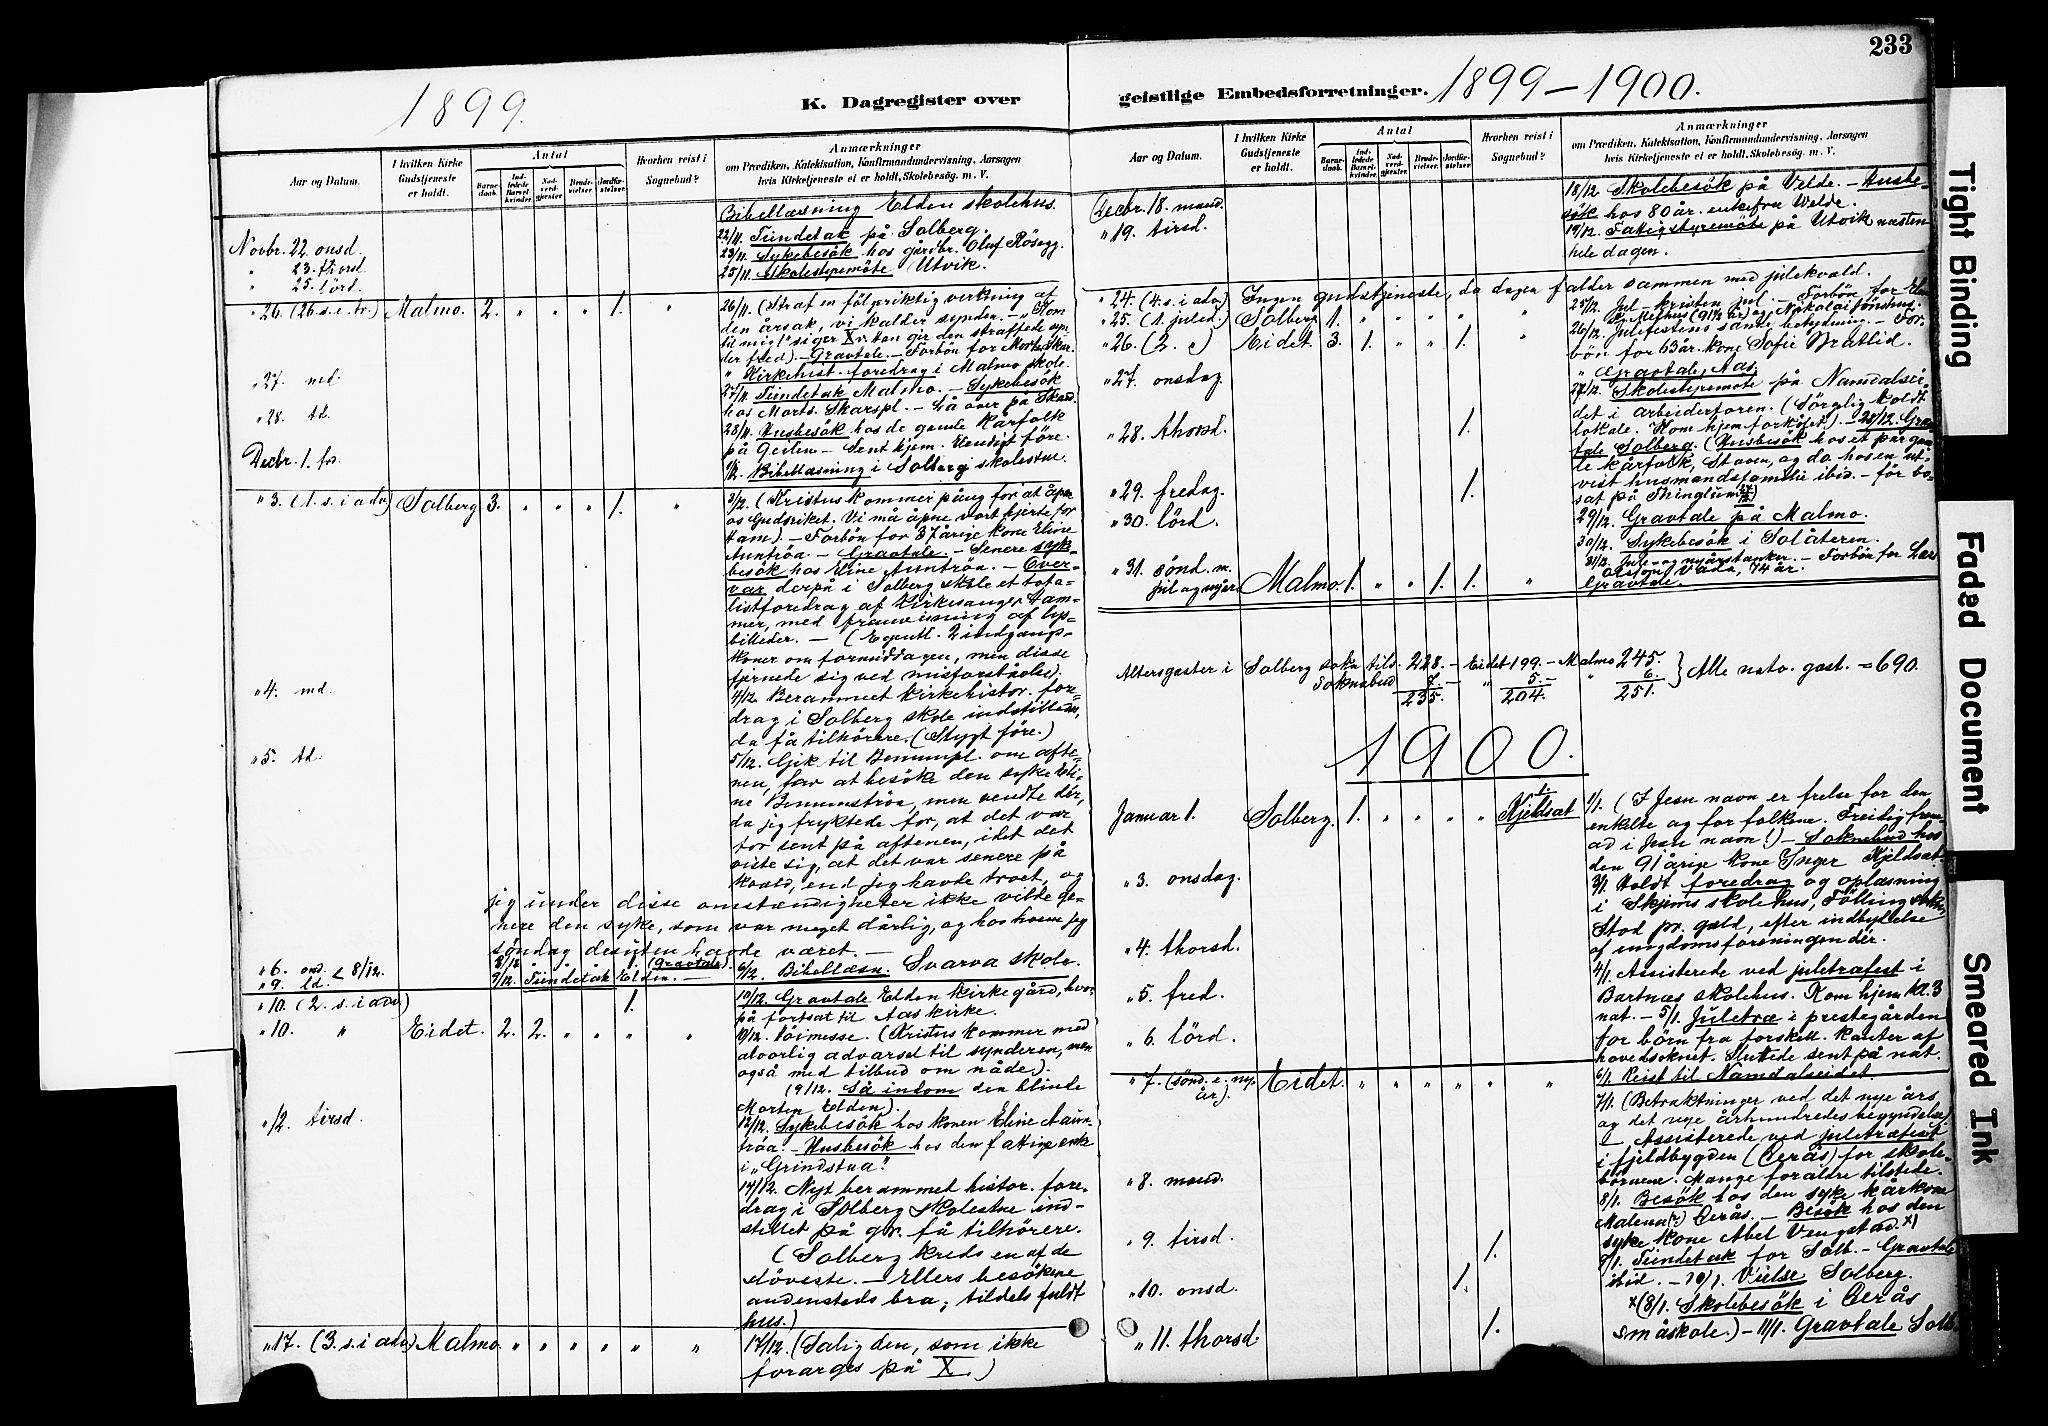 233
1899.
K. Dagregister over
geistlige Embedsforretninger. 1899–1900.
Aar og Datum.
I hvilken Kirke Gudstjeneste er holdt.
Antal
Barnedaab.
Indledede Barselkvinder.
Nadverdgjester
Brudevielser.
Jordfæstelser.
Hvorhen reist i Sognebud?
Anmærkninger
om Prædiken, Katekisation, Konfirmandundervisning, Aarsagen
hvis Kirketjeneste ei er holdt, Skolebesøg. m. V.
Bibellæsning Elden skolehus.
Novbr. 22 onsd. 22/11. Tiindetak på Solberg.
" 23. thorsd. 23/11. Sykebesök hos gårdbr. Oluf Rösegg.
" 25. lörd. 25/11. Skolestyremöte Utvik.
" 26. (26. s. e. tr.) Malmo. 2. " " " 1. " 26/11. (Straf en fölgeriktig virkning af
den årsak, vi kalder synden. – "Kom
til mig!" siger X; han gir den straffede syn-
der fred). – Gravtale. – Forbön for Morts. Skar.
" Kirkehist. foredrag i Malmo skole.
" 27. md. 27/11. Tiindetak Malmo. – Sykebesök
hos Morts. Skarspl. – Lå over på
" 28. td. 28/11. Husbesök hos de gamle kårfolk
på Geilen – Sent hjem. Elendigt före.
Decbr. 1. fr. 1/12. Bibellæsning i Solberg skolestue.
" 3. (1. s. i adv.) Solberg 3. " " " 1. " 3/12. (Kristus kommer påny for at åpne
os Gudsriket. Vi må åpne vort hjerte for
ham). – Forbön for 37 årige kone Eline
Auntröa. – Gravtale. – Senere syke-
besök hos Eline Auntröa. – Over-
var derpå i Solberg skole et tota-
listforedrag af Kirkesanger Ham-
mer, med fremvisning af lys-
billeder. – (Egentl. 2 indgangs-
koner om formiddagen, men disse
fjernede sig ved misforståelse).
" 4. md. 4/12. Berammet Kirkehistor. fore-
drag i Solberg skole indstilledes,
da få tilhörere. (Stygt före.)
" 5. td. 5/12. Gik til Benumpl. om afte-
nen, for at besöke den syke Eli-
ne Benumströa, men vendte dér,
da jeg fryktede for, at det var
for sent på aftenen, idet det
viste sig, at det var senere på
kvæld, end jeg havde troet, og
jeg under disse omstændigheter ikke vilde ge-
nere den syke, som var meget dårlig, og hos hvem jeg
söndag desuten havde været. –
" 6. ond. < 8/12. 8/12 1. (Gravtale) 6/12. Bibellæsn. Svarva skole.
" 9. ld. 9/12. Tiindetak Elden. –
" 10. (2. s. i adv.) 1. 10/12. Gravtale Elden Kirkegård, hvor-
på fortsat til Aas kirke.
" 10. " Eidet. 2. 2. " " " " 10/12. Höimesse. (Kristus kommer med
alvorlig advarsel til synderen, men
også med tilbud om nåde).
(9/12. Så indom den blinde
Morten Elden).
" 12. tirsd. 12/12. Sykebesök hos konen Eline Aun-
tröa. – Husbesök hos den fattige enke
i "Grindstua."
14/12. Nyt berammet histor. fore-
drag i Solberg Skolestue ind-
stillet på gr. få tilhörere.
(Solberg kreds en af de
döveste. – Ellers besökene
andensteds bra; tildels fuldt
hus.)
" 17. (3. s. i adv.) Malmo. " " " " " " 17/12. (Salig den, som ikke
forarges på X)
Aar og Datum.
I hvilken Kirke Gudstjeneste er holdt.
Antal
Barnedaab.
Indledede Barselkvinder.
Nadverdgjester.
Brudevielser.
Jordfæstelser.
Hvorhen reist i Sognebud?
Anmærkninger
om Prædiken, Katekisation, Konfirmandundervisning, Aarsagen
hvis Kirketjeneste ei er holdt. Skolebesög. m. V.
Decbr. 18. mand. 18/12. Skolebesök på Velde. – Husbe-
sök hos 80 år. enkefra Welde.
" 19. tirsd. 19/12. Fatigstyremöte på Utvik næsten
hele dagen.
" 24. (4. s. i adv.) Ingen gudstjeneste, da dagen falder sammen med julekvæld.
" 25. (1. juled.) Solberg 1. " " " " " 25/12. Jul – kristen jul. – Forbön for
(91½ år) og Nikolai
" 26. (2. ") Eidet. 3. 1. " " 1. " 26/12. Julefestens sande betydning. – For-
bön for 63 år. kone Sofie Bratlid.
" Gravtale, Aas.
" 27. onsdag. 27/12. Skolestyremöte på Namdalsei-
det i arbeiderforen. (Sörgelig koldt
lokale. Kom hjem forkjölet). – 28/12. Grav-
" 28. thorsd. 1. tale Solberg. (Husbesök hos et par gam-
le kårfolk, Staum, og do. hos en ut-
vist husmandsfamilie ibid. – för be-
sat på Thinglum
" 29. fredag. 1. 29/12. Gravtale på Malmo.
" 30. lörd. 30/12. Sykebesök i Solåteren.
" 31. sönd. m. jul og nyår Malmo. 1. " " 1. 1. " 31/12. Jule- og nyårstanker. – Forbön for Lars
Olsson Vada, 74 år.
Gravtale.
Altersgæster i Solberg sokn tils. 228. – Eidet 199. – Malmo 245.
Soknebud 7. – " 5. – " 6. } Alle natv. gæst. = 690.
235. 204. 251.
1900.
Januar 1. Solberg. 1. " " " " Kjeldsat 1/1. (I Jesu navn er frelse for den
enkelte og for folkene. Freidig frem-
ad i Jesu navn!) – Soknebud hos
den 91 årige kone Inger Kjeldsat.
" 3. onsdag. 3/1. Holdt foredrag og oplæsning
i Skjems skolehus, Fölling sokn,
Stod pr. gæld, efter indbydelse
af ungdomsforeningen dér.
" 4. thorsd. 4/1. Assisterede ved juletræfest i
Bartnæs skolehus. Kom hjem kl. 3
" 5. fred. nat. – 5/1. Juletræ i prestegården
for börn fra forskell. kanter af
" 6. lörd. hovedsoknet. Sluttede sent på nat.
6/1. Reist til Namdalseidet.
" 7. (sönd. e. nyår). Eidet. " " " " " " 7/1. (Betraktninger ved det nye års
og det nye århundredes begyndelse)
– Assisterede ved juletræfest
i fjeldbygden (Oerås) for skole-
börnene. Mange forældre tilstede.
" 8. mand. 8/1. Besök hos den syke kårkone
Malena (?) Oerås. – Besök hos den
syke kone Abel Vengstad. x)
" 9. tirsd. 1. 9/1. Tiindetak for Solb. – Gravtale
ibid. – 10/1. Vielse Solberg.
" 10. onsd. 1. x (8/1. Skolebesök i Oerås
" 11. thorsd. 1. småskole.) – 11/1. Gravtale Solb.
Tight Binding
Faded Document
Smeared Ink